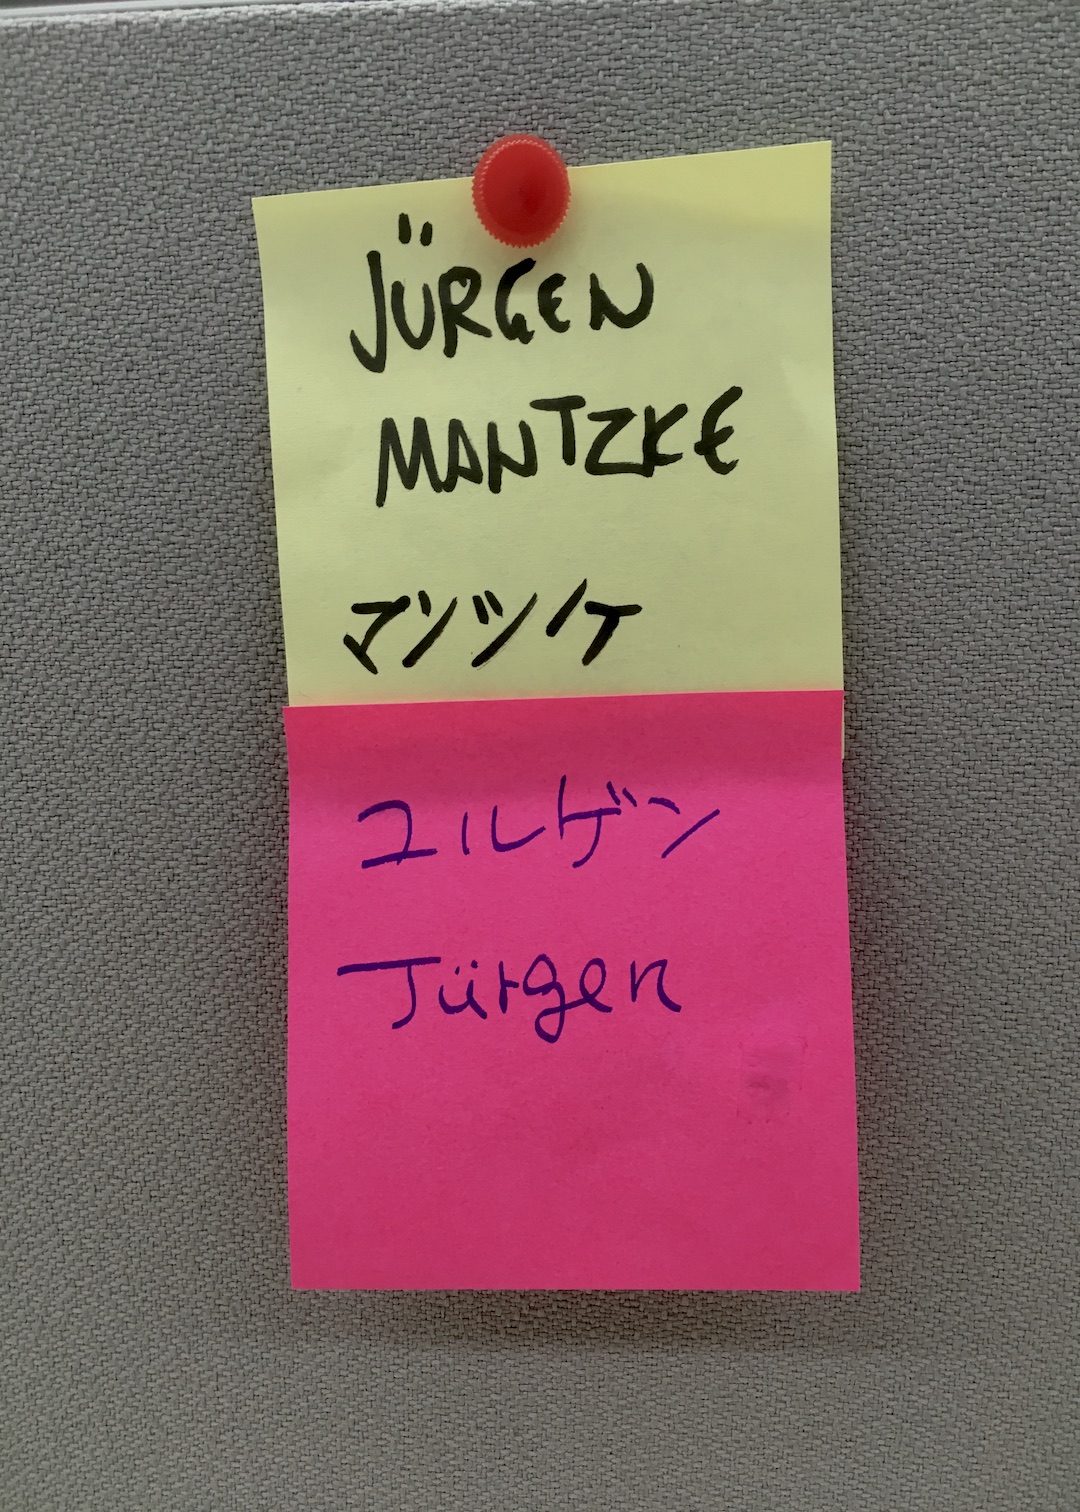 JÜRGEN
MANTZKE
マンツケ
ユルゲン
Jürgen